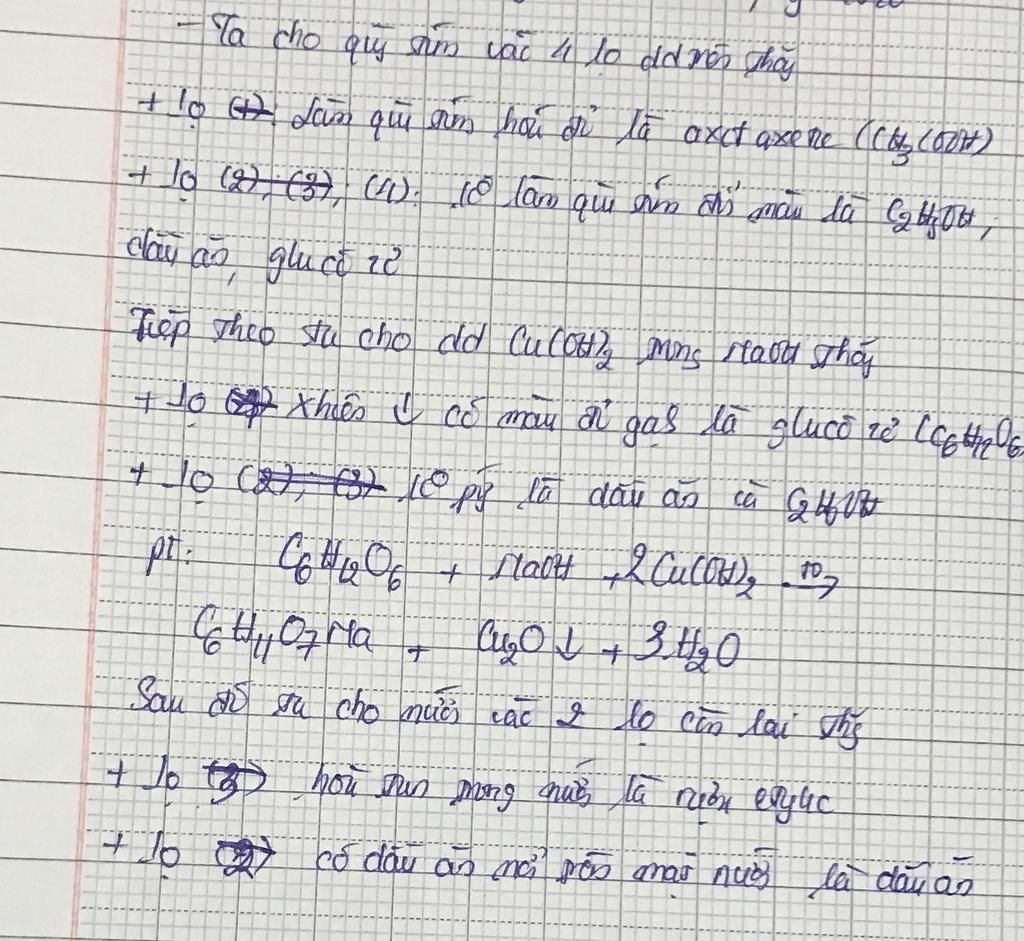 - Ta cho quỳ tím vào 4 lọ dd rồi thấy
+ lọ (1) làm quỳ tím hoá đỏ là (CH3COOH)
+ lọ (2), (3), (4): ko làm quỳ tím đổi màu là C2H5OH,
dầu ăn, glucôzơ
Tiếp theo ta cho dd Cu(OH)2 trong NaOH thấy
+ lọ (4) ↓ có màu đỏ gạch là glucôzơ (C6H12O6
+ lọ (2), (3) ko pư là dầu ăn và C2H5OH
PT: C6H12O6 + NaOH + 2Cu(OH)2 to→
C6H11O7Na + Cu2O ↓ + 3H2O
Sau đó ta cho nước vào 2 lọ còn lại thấy
+ lọ (3) hoà tan trong nước là rượu etylic
+ lọ (2) có dầu ăn nổi trên mặt nước là dầu ăn